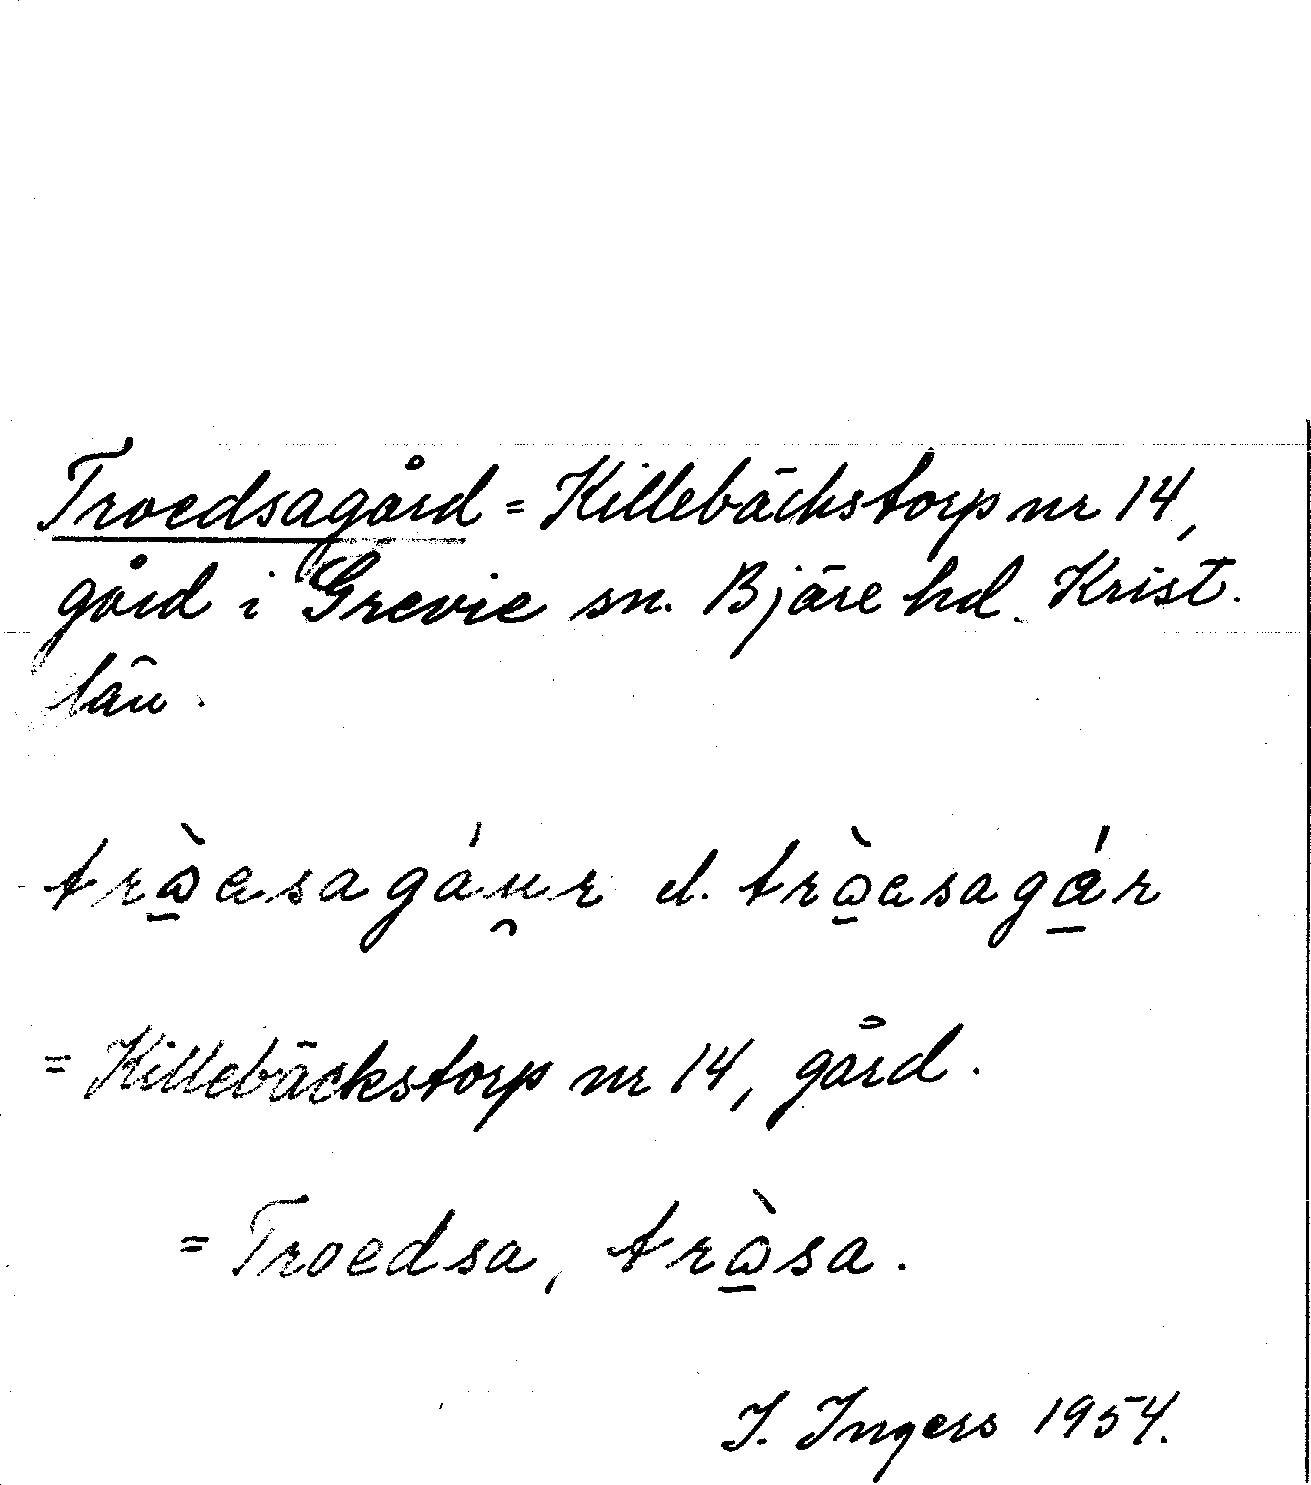 Troedsagård = Killebäckstorp nr 14,
gård i Grevie sn. Bjäre hd. Krist.
län.
trɷ̠̀asagáu̯r el. trɷ̠̀asagá̠r
= Killebäckstorp nr 14, gård.
= Troedsa, trɷ̠̀sa.
I. Ingers 1954.